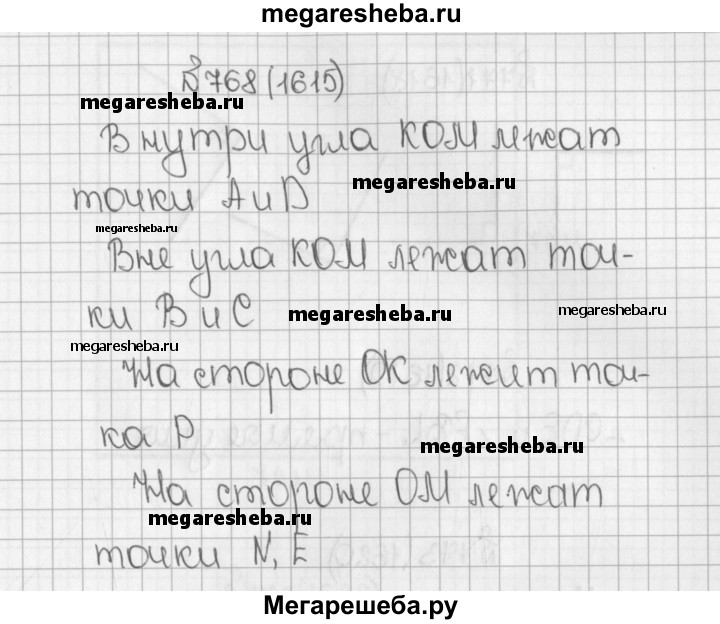 megaresheba.ru
№768(1615)
megaresheba.ru
Внутри угла КОМ лежат
megaresheba.ru
точки А и D
megaresheba.ru
Вне угла КОМ лежат точ-
ки В и С
megaresheba.ru
megaresheba.ru
megaresheba.ru
На стороне ОК лежит точ-
ка Р
megaresheba.ru
На стороне ОМ лежат
megaresheba.ru
точки N, E
Мегарешеба.ру